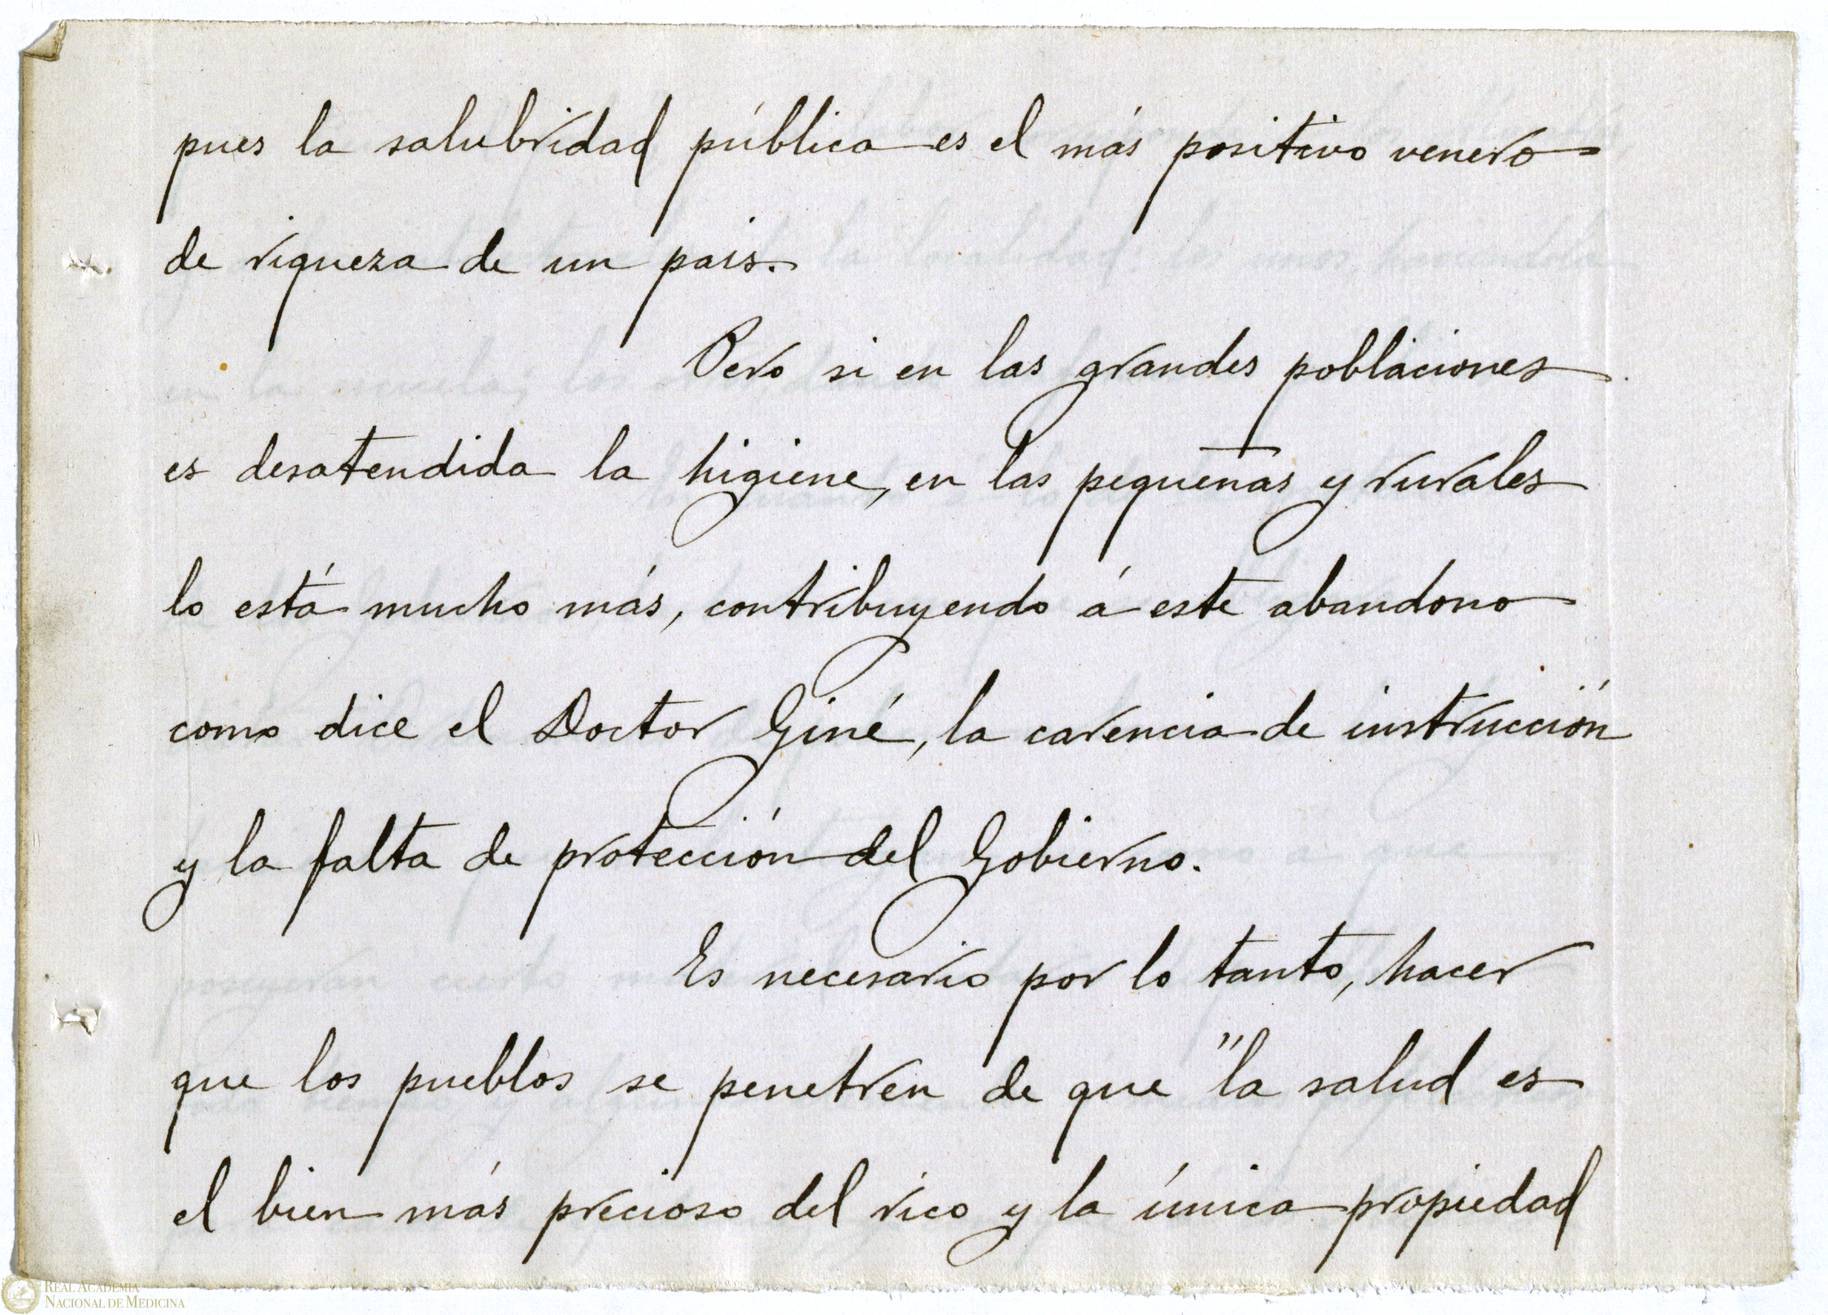 pues la salubridad pública es el más positivo venero
de riqueza de un pais.
Pero si en las grandes poblaciones
es desatendida la higiene, en las pequeñas y rurales
lo está mucho más, contribuyendo á este abandono
como dice el Doctor Giné, la carencia de instrucción
y la falta de protección del Gobierno.
Es necesario por lo tanto, hacer
que los pueblos se penetren de que "la salud es
el bien más precioso del rico y la única propiedad
REAL ACADEMIA
NACIONAL DE MEDICINA